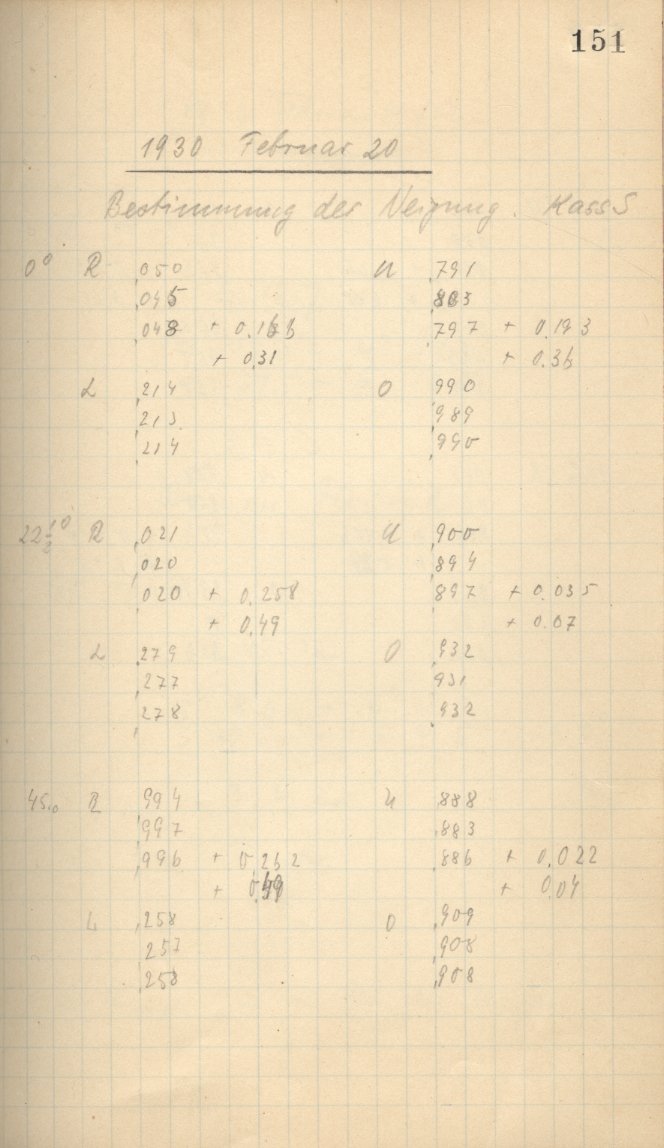 151
1930 Februar 20
Bestimmung der Neigung. Kass S
0° R ,050 U ,791
,045 ,803
,048 + 0.166 ,797 + 0.193
+ 0.31 + 0.36
L ,214 O ,990
,213 ,989
,214 ,990
22½° R ,021 U ,900
,020 ,894
,020 + 0.258 ,897 + 0.035
+ 0.49 + 0.07
L ,279 O ,932
,277 ,931
,278 ,932
45.0 R ,994 U ,888
,997 ,883
,996 + 0.262 ,886 + 0.022
+ 0.49 + 0.04
L ,258 O ,909
,257 ,908
,258 ,908